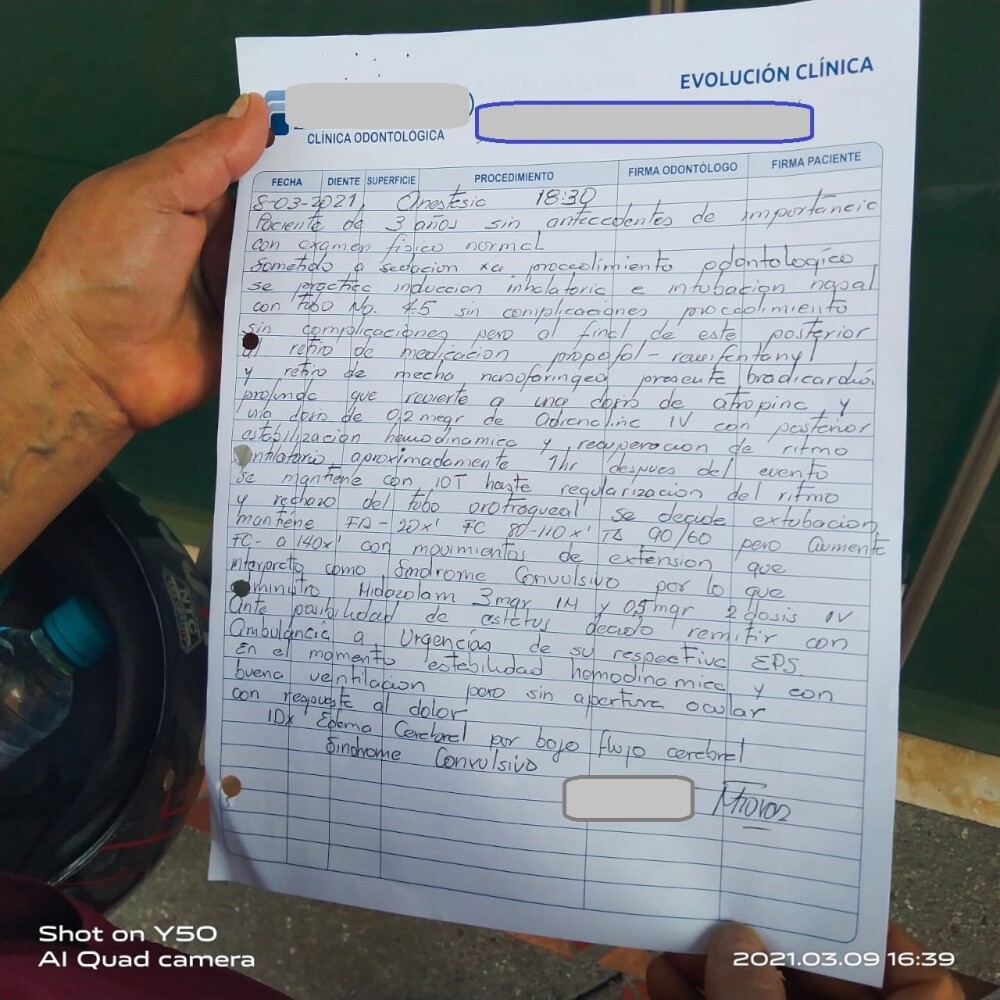 EVOLUCIÓN CLÍNICA
CLÍNICA ODONTOLÓGICA
FECHA DIENTE SUPERFICIE PROCEDIMIENTO FIRMA ODONTÓLOGO FIRMA PACIENTE
8-03-2021, Anestesia 18:30
Paciente de 3 años sin antecedentes de importancia
con examen fisico normal
Sometido a sedacion xa procedimiento odontologico
se practica induccion inhalatoria e intubacion nasal
con tubo No. 4.5 sin complicaciones procedimiento
sin complicaciones pero al final de este posterior
al retiro de medicacion propofol - remifentanyl
y retiro de mecha nasofaringea presenta bradicardia
profunda que revierte a una dosis de atropina y
una dosis de 0,2 mcgr de Adrenalina IV con posterior
estabilización hemodinamica y recuperacion de ritmo
ventilatorio aproximadamente 1hr despues del evento
se mantiene con IOT hasta regularizacion del ritmo
y rechazo del tubo orotraqueal se decide extubacion
mantiene FR- 20x' FC 80-110x' TA 90/60 pero aumenta
FC- a 140x' con movimientos de extension que
interpreto como Sindrome Convulsivo por lo que
suministro Midazolam 3mgr IM y 0,5mgr 2 dosis IV
Ante posibilidad de estatus decido remitir con
Ambulancia a Urgencias de su respectiva EPS.
En el momento estabilidad hemodinamica y con
buena ventilacion pero sin apertura ocular
con respuesta al dolor
IDx Edema Cerebral por bajo flujo cerebral
Sindrome Convulsivo
Shot on Y50
AI Quad camera
2021.03.09 16:39